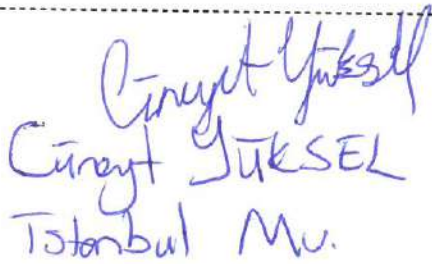 Cüneyt Yüksel
Cüneyt YÜKSEL
İstanbul Mv.